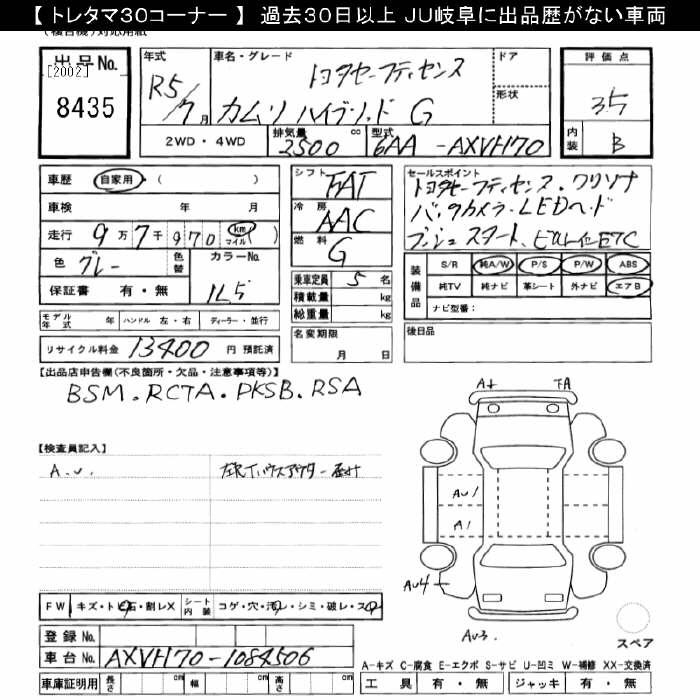 【 トレタマ30コーナー 】 過去30日以上 JU岐阜に出品歴がない車両
出品No.
[2002]
8435
年式
R5/7月
車名・グレード
トヨタセーフティセンス
カムリ ハイブリッド G
ドア
形状
評価点
3.5
内装
B
2WD・4WD
排気量
2500
cc
型式
6AA-AXVH70
車歴 自家用 ( )
車検 年 月
走行 9万7千970 km マイル
色 グレー
色替
カラーNo.
1L5
保証書 有・無
シフト
FAT
冷房
AAC
燃料
G
セールスポイント
トヨタセーフティセンス、ワリソナ
バックカメラ、LEDヘッド
プッシュスタート、ビルトインETC
乗車定員 5 名
積載量 kg
総重量 kg
装備品
S/R 純A/W P/S P/W ABS
純TV 純ナビ 革シート 外ナビ エアB
ナビ型番:
モデル年式 年 ハンドル 左・右 ディーラー・並行
名変期限
月 日
後日品
リサイクル料金 13400 円 預託済
【出品店申告欄(不良箇所・欠品・注意事項等)】
BSM.RCTA.PKSB.RSA
【検査員記入】
A.U.
A1
AU1
A1
AU4
AU3
FW キズ・トビ石・割レX
シート内装 コゲ・穴・汚レ・シミ・破レ・スレ
スペア
登録No.
車台No. AXVH70-1084506
A-キズ C-腐食 E-エクボ S-サビ U-凹ミ W-補修 XX-交換済
車庫証明用 長さ cm 幅 cm 高さ cm
工具 有・無 ジャッキ 有・無